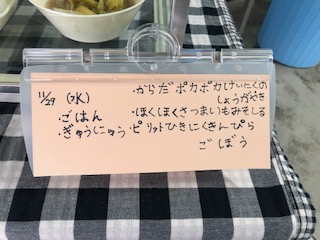 11/29 (水)
・ごはん
・ぎゅうにゅう
・からだポカポカけいにくの
しょうがやき
・ほくほくさつまいもみそしる
・ピリットひきにくきんぴら
ごぼう